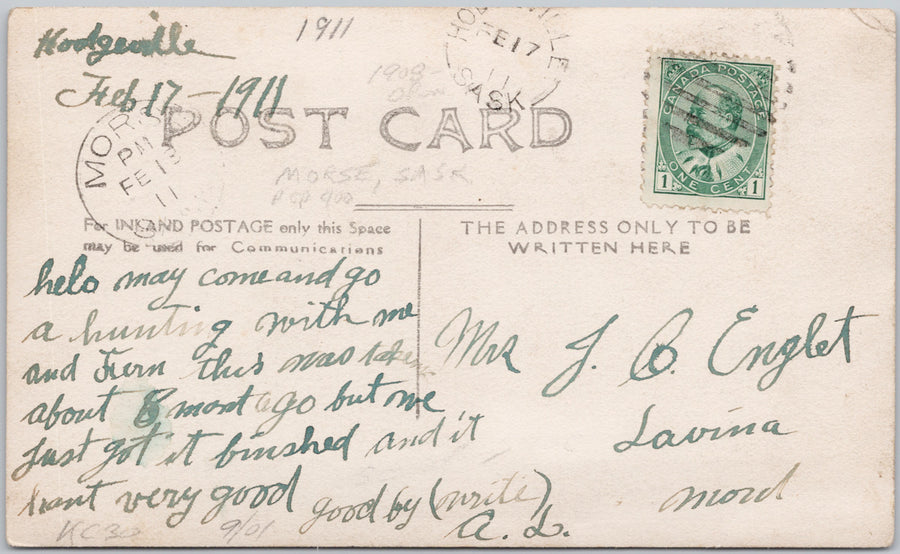 Hodgeville
1911
Feb 17 - 1911
HODGEVILLE
FE 17
11
SASK
1908-
MORSE
PM
FE 18
11
POST CARD
MORSE, SASK
POP 400
CANADA POSTAGE
1 1
ONE CENT
For INLAND POSTAGE only this Space
may be used for Communications
THE ADDRESS ONLY TO BE
WRITTEN HERE
helo may come and go
a hunting with me
and Fern this was taken
about 8 mont ago but we
Just got it finshed and it
hant very good
good by (write)
A. L.
Mrs J. C. Englet
Lavina
mord
KC30 9/01